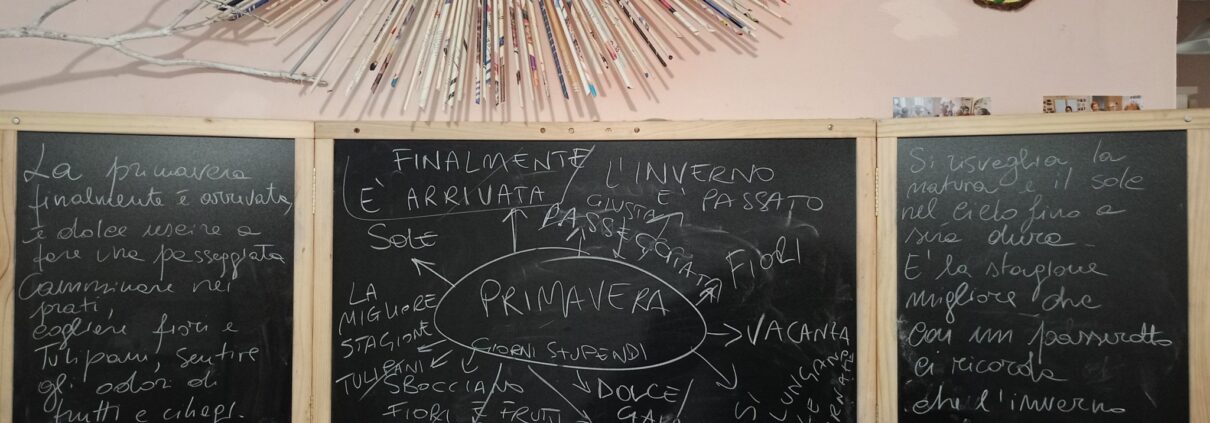 La primavera
finalmente è arrivata,
è dolce uscire a
fare una passeggiata
Camminare nei
prati,
cogliere fiori e
Tulipani, sentire
gli odori di
frutti e ciliegi.
FINALMENTE
È ARRIVATA
L'INVERNO
È PASSATO
GIUSTA
PASSEGGIATA
SOLE
FIORI
PRIMAVERA
LA
MIGLIORE
STAGIONE
VACANZA
GIORNI STUPENDI
TULIPANI
SBOCCIANO
FIORI E FRUTTI
DOLCE
SI
Si risveglia la
natura e il sole
nel cielo fino a
sera dura.
E' la stagione
migliore che
con un passerotto
ci ricorda
che l'inverno